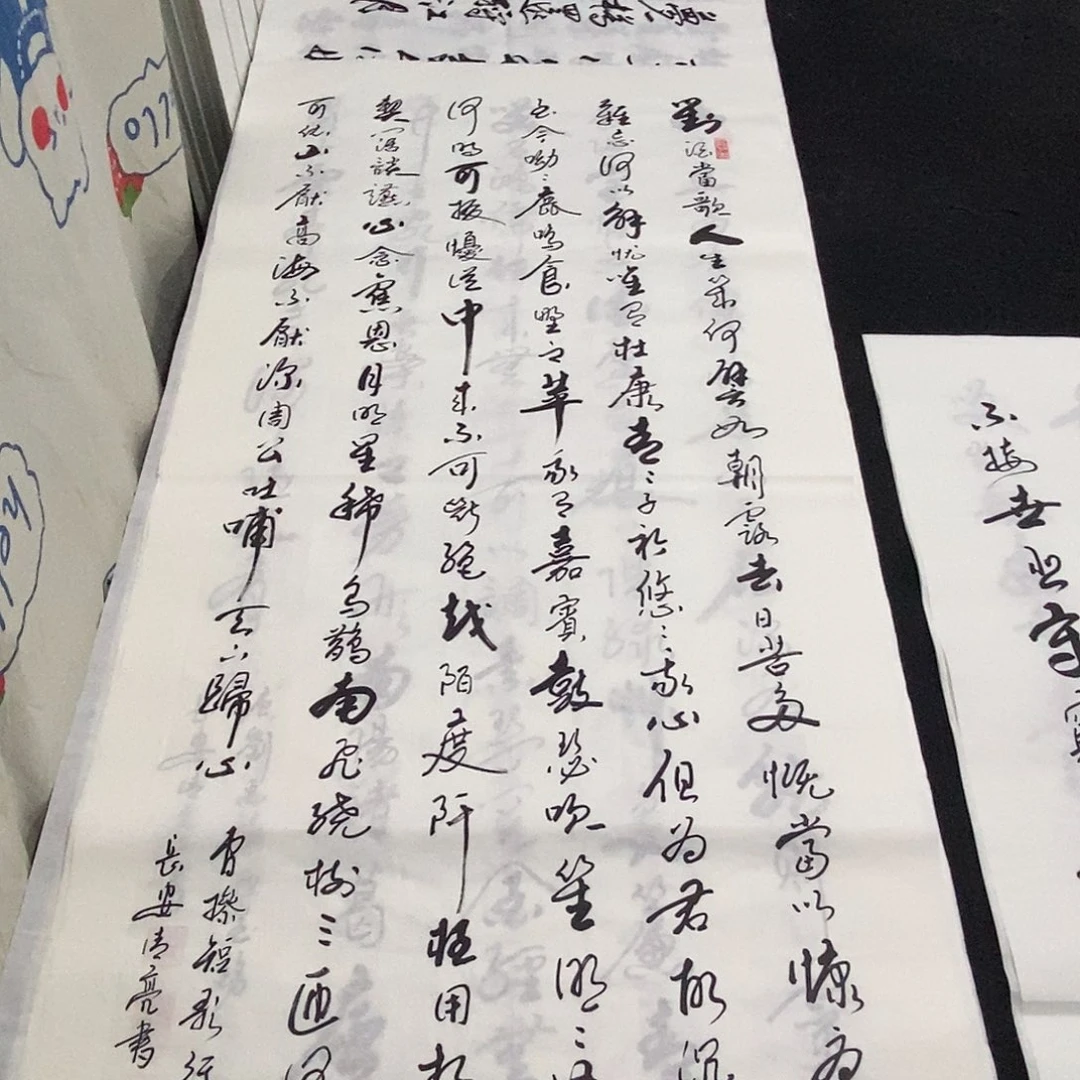 對酒當歌人生幾何譬如朝露去日苦多慨當以慷
難忘何以解忧唯有杜康青〻子衿悠〻我心但为君故沉
至今呦〻鹿鳴食野之苹我有嘉賓鼓瑟吹笙明〻
何明可掇憂從中来不可斷絕越陌度阡枉用相
契闊談讌心念舊恩月明星稀烏鵲南飛繞樹三匝何
可依山不厭高海不厭深周公吐哺天下歸心
曹操短歌行
長安清亮書